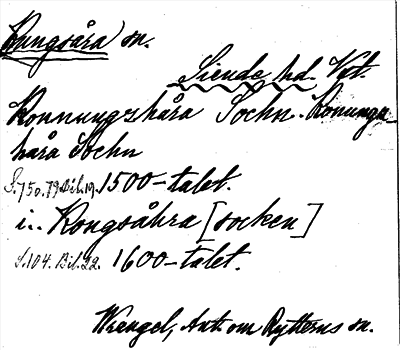 Kungsåra sn.
Siende hd. Vstl.
Konnungzhåra Sochn. Konunga-
hårå Sochn
S. 750. 79 Bil. 19. 1500-talet.
i.. Kongsåhra [socken]
S. 104. Bil. 22. 1600-talet.
Wrangel, Ant. om Rytterns sn.